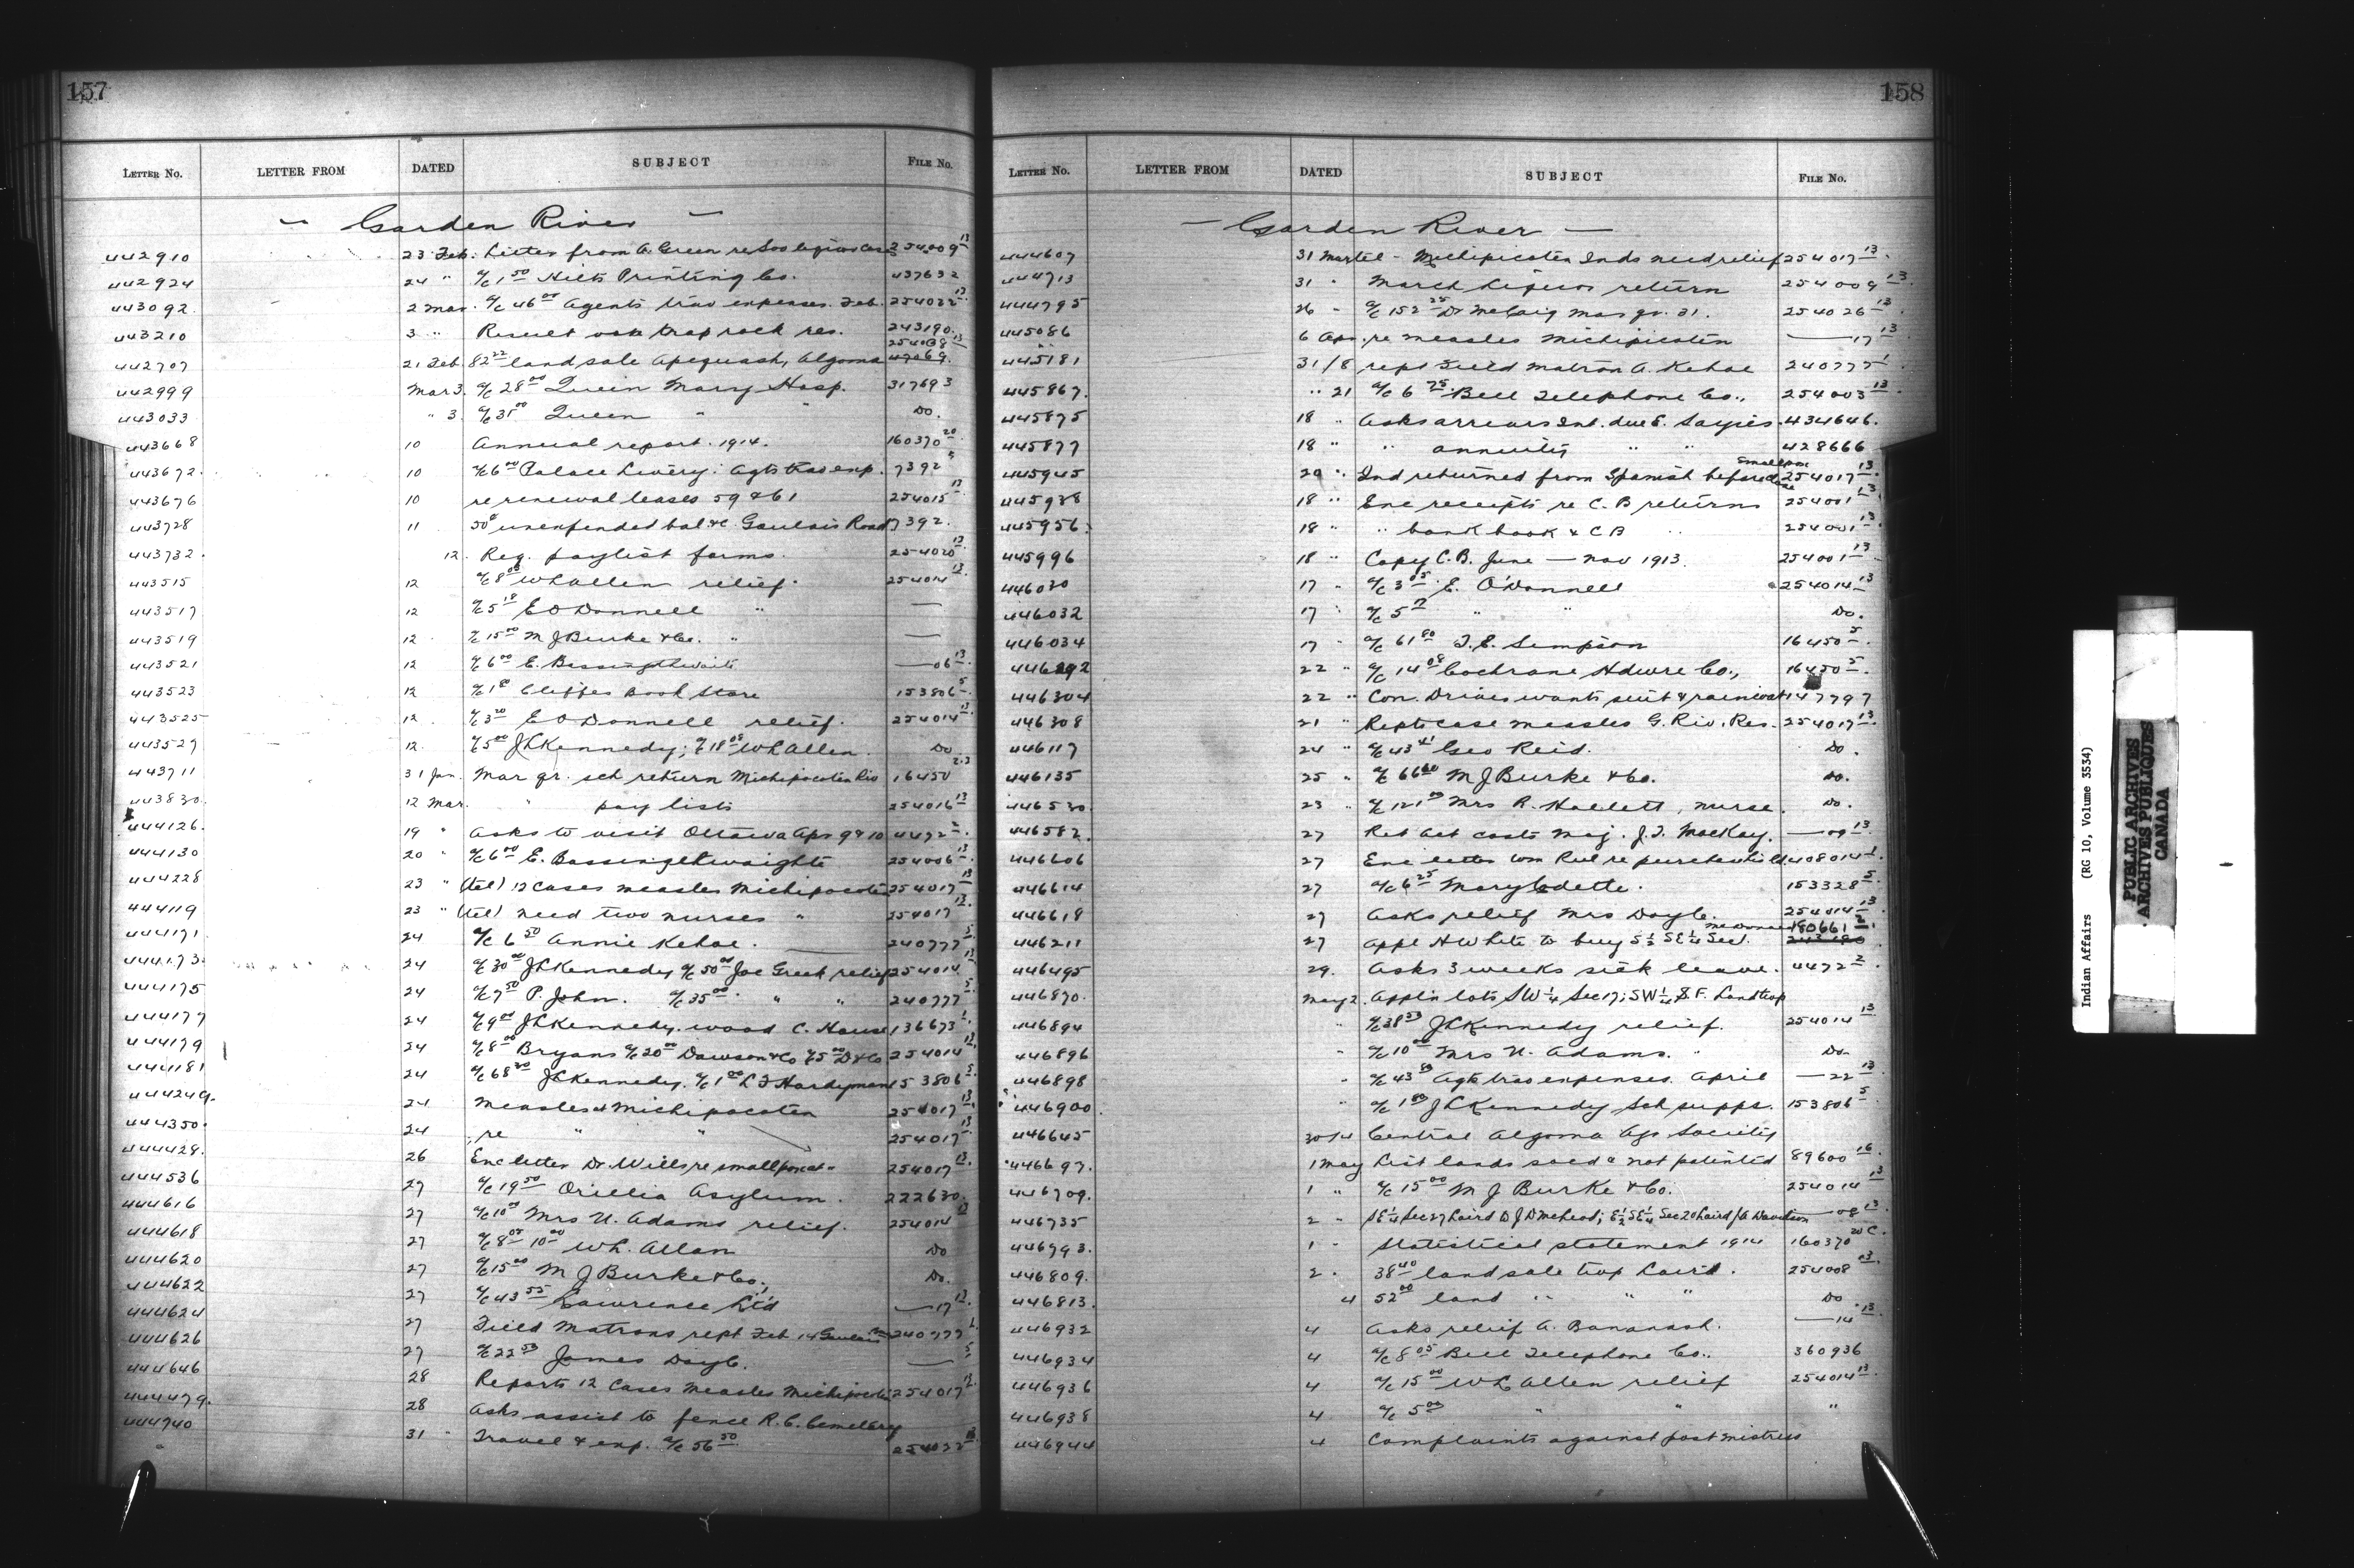 157
LETTER No. LETTER FROM DATED SUBJECT FILE No.
— Garden River —
442910 23 Feb. Letter from A. Green re 254009 13
442924 24 " a/c 1 50 Hilts Printing Co. 437632
443092 2 Mar. a/c 46 00 Agents trav expenses. Feb. 254022 13
443210 3 " Result trap rock res. 243190.
254008 13
442707 21 Feb. 82 22 land sale Apequash, Algoma
442999 Mar 3. a/c 28 00 Queen Mary Hosp. 317693
443033 " 3. a/c 31 00 Queen " " Do.
443668 10 Annual report. 1914. 160370 20
443672. 10 a/c 6 00 Palace Livery. Agts trav exp. 7392
443676 10 re renewal leases 59 & 61 254015 13
443728 11 50c unexpended bal a/c Goulais Road 7392.
443732. 12. Req. paylist forms. 254020 13
443515 12 a/c 8 00 W L Allen relief. 254014 13
443517 12 a/c 5 18 E O Donnell " —
443519 12 a/c 15 00 M J Burke & Co. " —
443521 12 a/c 6 00 E. —06 13
443523 12 a/c 1 Book Store 153806 5
443525 12 a/c 3 20 E O Donnell relief. 254014 13
443527 12. a/c 5 00 J L Kennedy; a/c 18 W L Allen. Do
443711 31 Jan. Mar qr. sch return Michipocoten Riv 16450
443830. 12 Mar. " pay lists 254016 13
444126. 19 " Asks to visit Ottawa Apr 9 & 10 4472 2
444130 20 " a/c 6 00 E. Bassingthwaighte 254006 13
444228 23 " (tel) 12 cases measles Michipocoten 254017 13
444119 23 " (tel) need two nurses " 254017 13
444171 24 a/c 6 50 Annie Kehoe. 240777
444173. 24 a/c 30 00 J L Kennedy a/c 50 00 Joe Greek relief 254014 13
444175 24 a/c 7 50 P. John. a/c 35 00 " " 240777
444177 24 a/c 9 00 J L Kennedy. wood C. House 136673
444179 24 a/c 8 00 Bryans a/c 20 00 Dawson & Co a/c 5 00 D & Co 254014 13
444181 24 a/c 68 J L Kennedy. a/c 1 00 L J Hardyman 153806 5
444249. 24 Measles at Michipocoten 254017 13
444350. 24 re " " 254017 13
444429. 26 Enc letter Dr. Wills re smallpox 254017 13
444536 27 a/c 19 50 Orillia Asylum. 222630.
444616 27 a/c 10 00 Mrs N. Adams relief. 254014 13
444618 27 a/c 8 10 00 W L. Allan Do
444620 27 a/c 15 00 M J Burke & Co., Do.
444622 27 a/c 43 55 Lawrence Ltd —17 13
444624 27 Field Matrons rept Feb. 14 Goulais 240777
444626 27 a/c 22 53 James Doyle. —
444646 28 Reports 12 cases measles Michipocoten 254017 13
444479. 28 Asks assist to fence R. C. Cemetery
444740 31 " Travel & exp. a/c 56 50 254022 13
158
LETTER No. LETTER FROM DATED SUBJECT FILE No.
— Garden River —
444607 31 Mar tel - Michipicoten Inds need relief 254017 13
444713 31 " March Liquor return 254009 13
444795 26 " a/c 152 25 Dr McCaig Mar qr. 31. 254026 13
445086 6 Apr. re measles Michipicoten —17 13
445181 31/8 rept Field Matron A. Kehoe 240777 1
445867. " 21 a/c 6 75 Bell Telephone Co., 254003 13
445875 18 " Asks arrears Int. due E. Sayies. 434646.
445877 18 " " annuity " " 428666
445945 20 " Ind returned from Spanish before smallpox 254017 13
445938 18 " Enc receipts re C. B returns 254001 13
445956 18 " " bank book & C B " 254001 13
445996 18 " Copy C.B. June — Nov 1913. 254001 13
446030 17 " a/c 3 05 E. O'Donnell 254014 13
446032 17 " a/c 5 " " Do.
446034 17 " a/c 61 80 T. E. Simpson 16450 5
446292 22 " a/c 14 08 Cochrane Hdwre Co., 16450 5
446304 22 " Con. Driver wants suit & raincoat 147797
446308 21 " Repts case measles G. Riv. Res. 254017 13
446117 24 " a/c 43 41 Geo Reid. Do.
446135 25 " a/c 66 60 M J Burke & Co. Do.
446530. 23 " a/c 121 00 Mrs R. Hallett, nurse. Do.
446582. 27 Ret act costs Maj. J. J. MacKay. —09 13
446606 27 Enc letter Wm Rul re purchase 408014 1
446614 27 a/c 6 25 Mary Cadotte. 153328 5
446618 27 Asks relief Mrs Doyle. 254014 13
446211 27 Appl H White to buy S ½ SE ¼ Sec 1. McDonald 180661
446495 29. Asks 3 weeks sick leave. 4472 2
446870. May 2. Appl'n lots SW ¼ Sec 17; SW ¼ S.F. Land
446894 " a/c 38 53 J L Kennedy relief. 254014 13
446896 " a/c 10 00 Mrs N. Adams. " Do
446898 " a/c 43 Agts trav expenses. April —22 13
446900. " a/c 1 J L Kennedy Sch supps. 153806 5
446645 30/4 Central Algoma Agr Society
446697. 1 May List lands sold & not patented 89600 16
446709. 1 " a/c 15 00 M J Burke & Co. 254014 13
446735 2 " SE ¼ Sec 27 Laird D J McLeod; E ½ SE ¼ Sec 20 Laird J A Davidson —08 13
446793. 1 " Statistical statement 1914 160370 20 C.
446809. 2 " 38 40 land sale twp Laird. 254008 13
446813. 4 52 00 land " " " Do
446932 4 Asks relief A. Bananash. —14 13
446934 4 a/c 8 05 Bell Telephone Co.. 360936
446936 4 a/c 15 00 W L Allen relief 254014 13
446938 4 a/c 5 00 " " "
446944 4 Complaints against postmistress
Indian Affairs (RG 10, Volume 3534)
PUBLIC ARCHIVES
ARCHIVES PUBLIQUES
CANADA